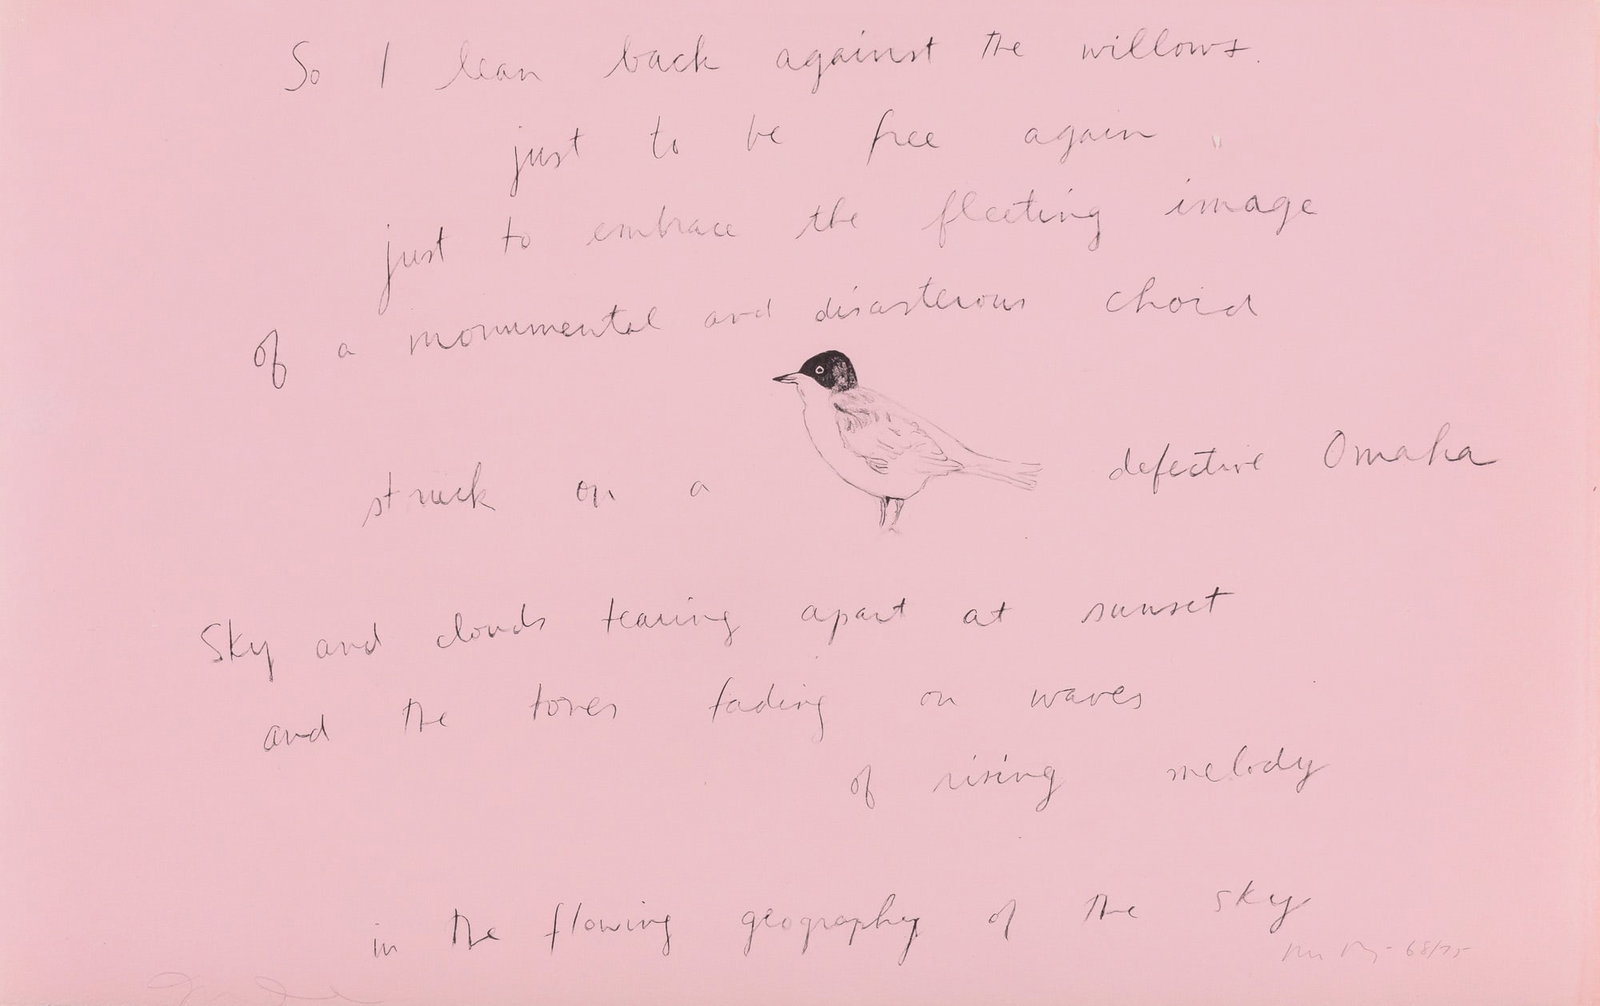 So I lean back against the willows.
just to be free again
just to embrace the fleeting image
of a monumental and disasterous chord
struck on a defective Omaha
Sky and clouds tearing apart at sunset
and the tones fading on waves
of rising melody
in the flowing geography of the sky
68/75